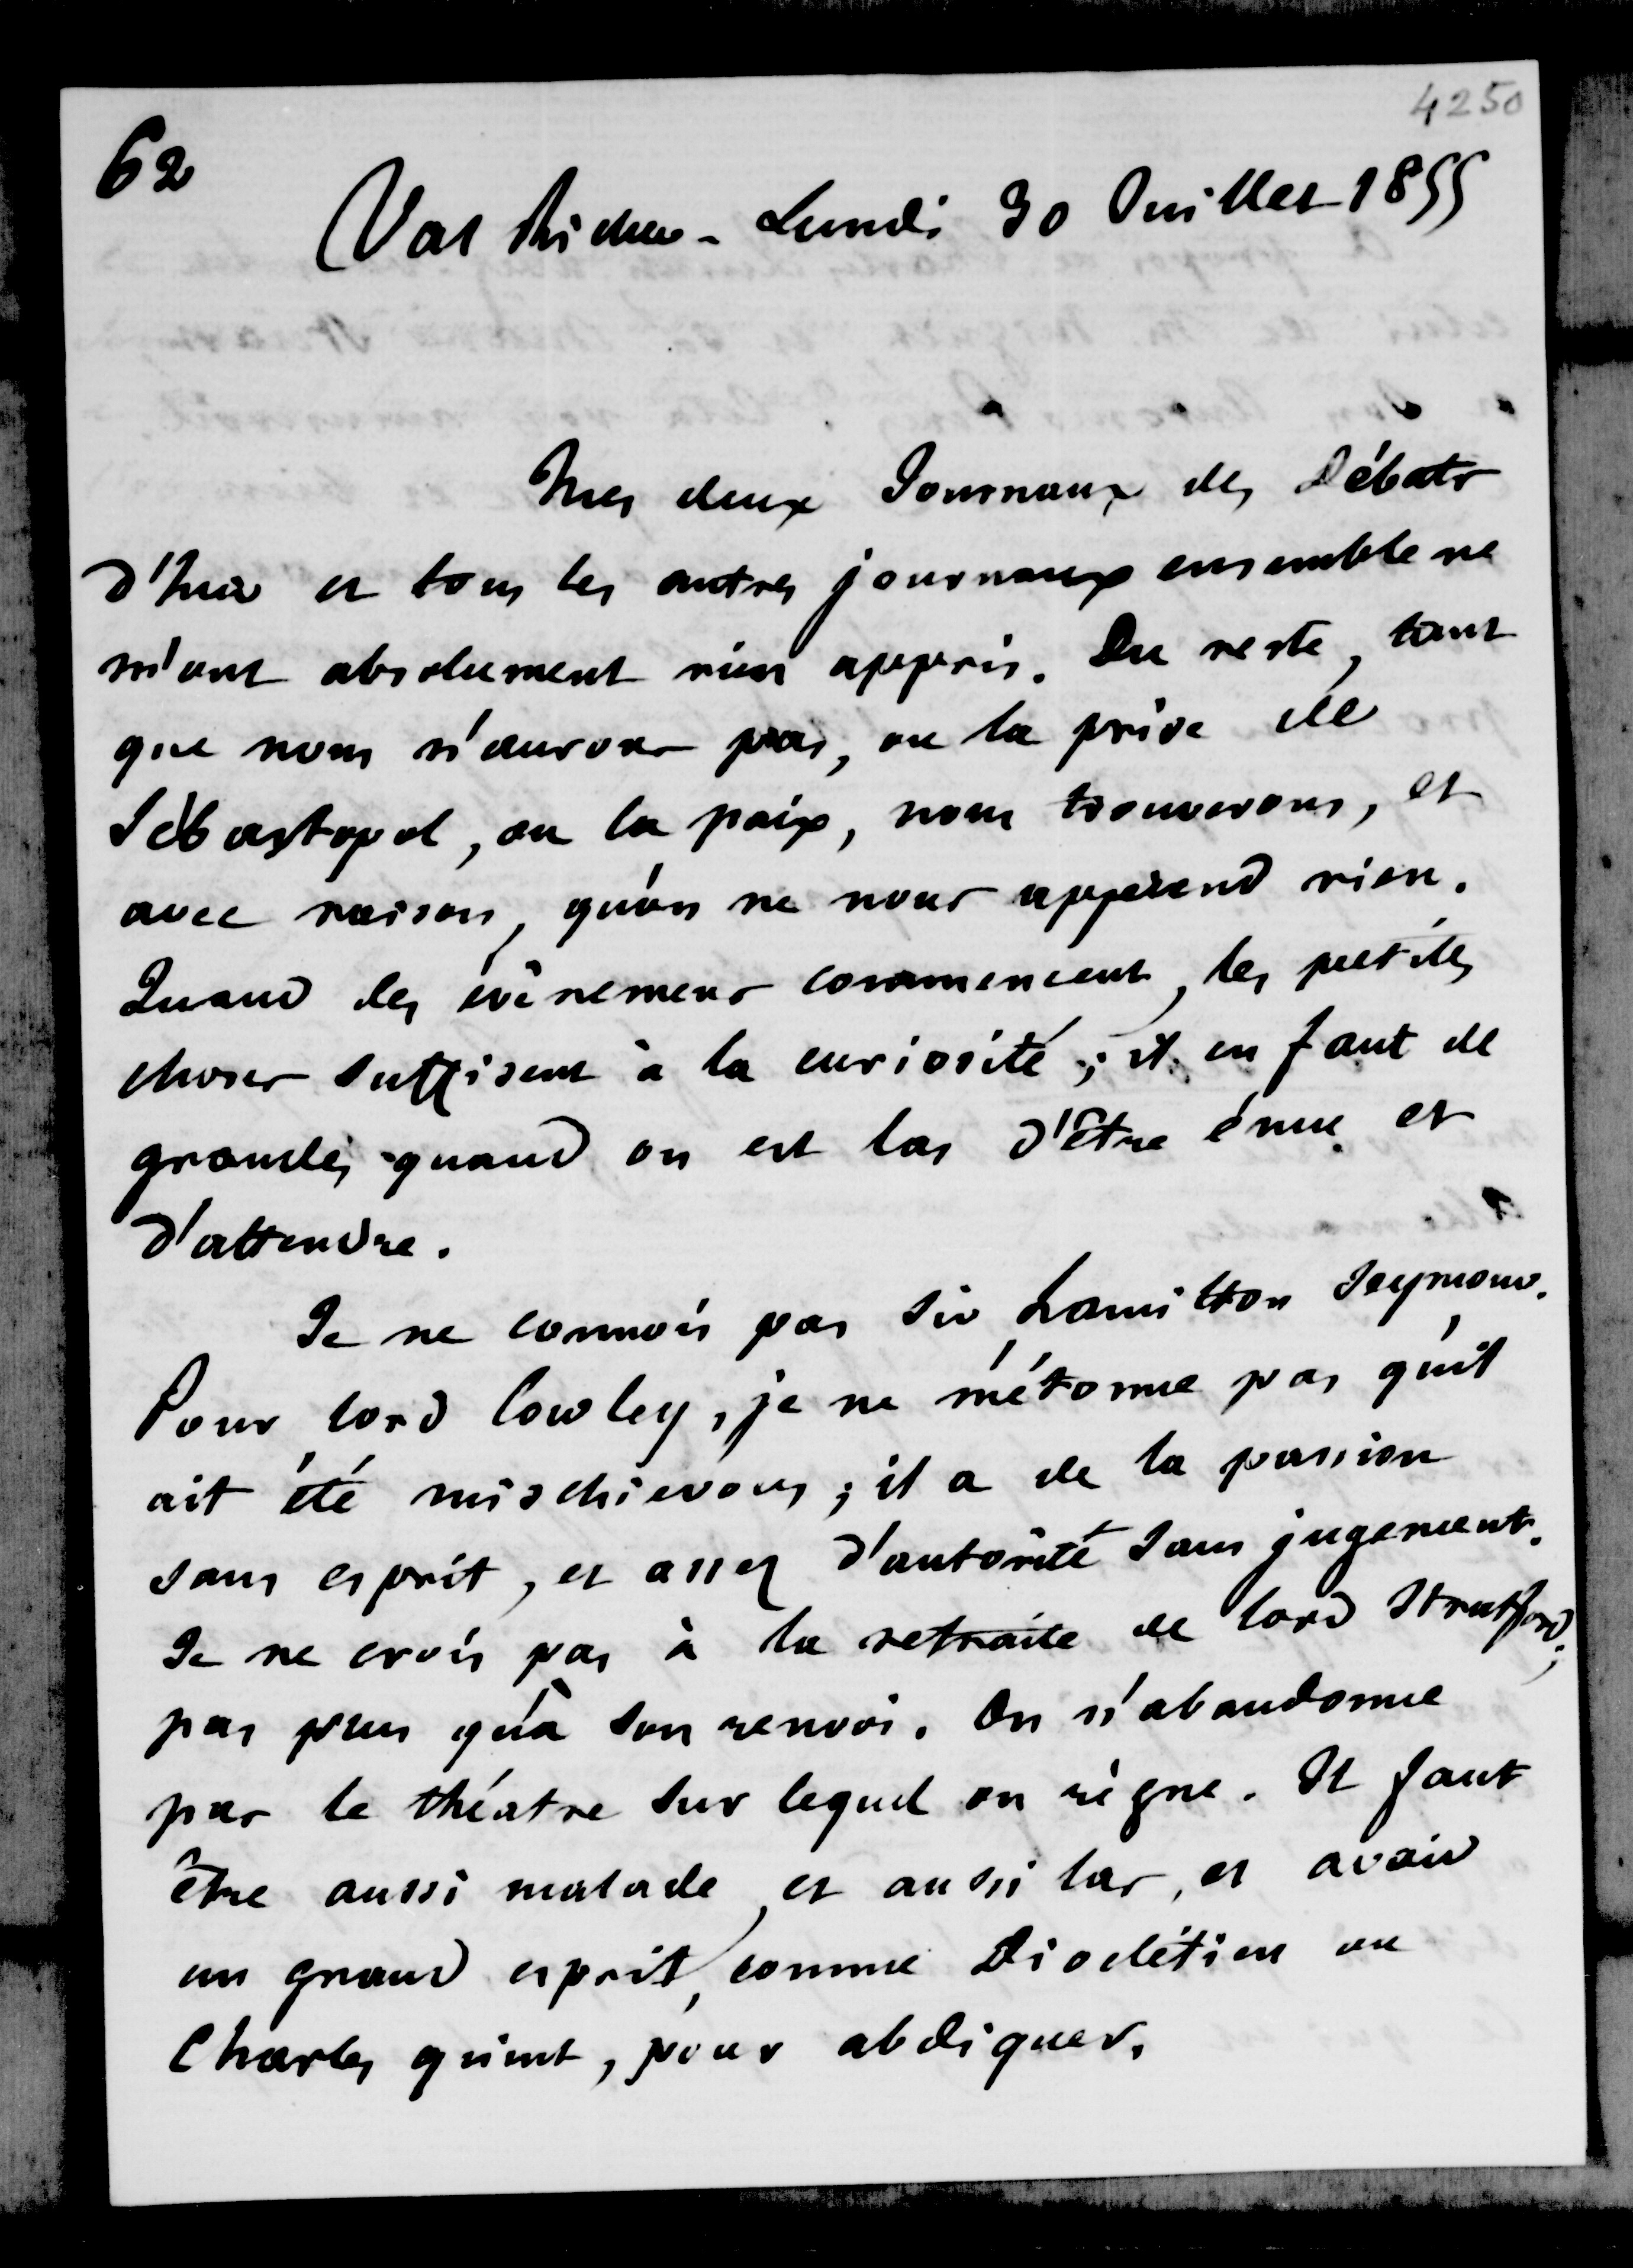 4250
62
Val Richer - Lundi 30 Juillet 1855
Mes deux Journaux des Débats
d'hier et tous les autres journaux ensemble ne
m'ont absolument rien appris. Du reste, tant
que nous n'aurons pas, ou la prise de
Sébastopol, ou la paix, nous trouverons, et
avec raison, qu'on ne nous apprend rien.
Quand les évènemens commencent, les petites
choses suffisent à la curiosité ; il en faut de
grandes quand on est las d'être ému et
d'attendre.
Je ne connois pas Sir Hamilton Seymour.
Pour lord Cowley, je ne m'étonne pas qu'il
ait été mischievous ; il a de la passion
sans esprit, et assez d'autorité sans jugement.
Je ne crois pas à la retraite de lord Stratford,
pas plus qu'à son renvoi. On n'abandonne
pas le théatre sur lequel on règne. Il faut
être aussi malade, et aussi las, et avoir
un grand esprit, comme Dioclétien ou
Charles quint, pour abdiquer.